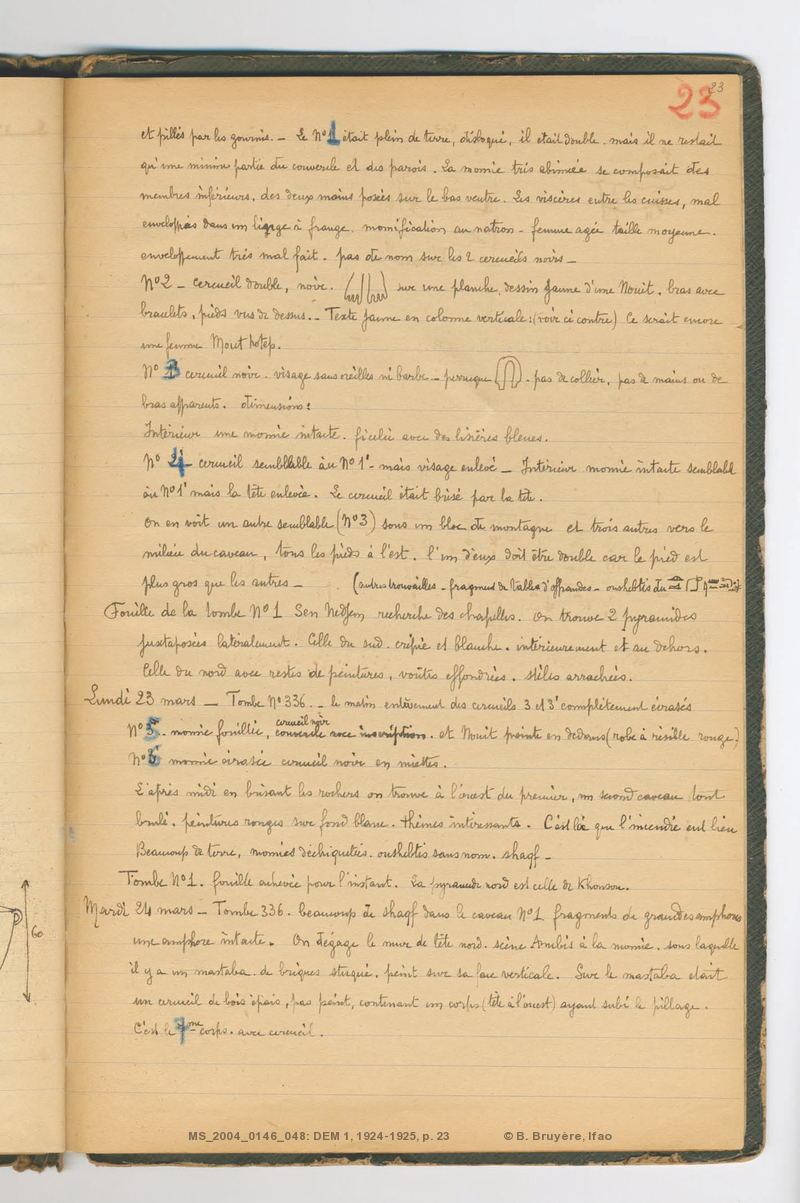 23
23
et pillés par les gournis. _ Le N° 1 était plein de terre, disloqué, il etait double. mais il ne restait
qu'une minime partie du couvercle et des parois. La momie très abimée se composait des
membres inférieurs, des deux mains posées sur le bas ventre. Les viscères entre les cuisses, mal
enveloppés dans un linge à frange. momification au natron - femme agée taille moyenne.
enveloppement très mal fait. pas de nom sur les 2 cercueils noirs _
N°2 - cercueil double, noir. sur une planche, dessin jaune d'une Nouit. bras avec
bracelets, pieds vus de dessus. _ Texte jaune en colonne verticale: (voir ci contre) Ce serait encore
une femme Mout hotep.
N° 3 cercueil noir - visage sans oreilles ni barbe _ perruque . pas de collier, pas de mains ou de
bras apparents. dimensions:
Intérieur une momie intacte. ficelée avec des lisières bleues.
N° 4 - cercueil semblable au N° 1' - mais visage enlevé _ Intérieur momie intacte semblable
au N° 1' mais la tête enlevée. Le cercueil était brisé par la tête.
On en voit un autre semblable (N°3) sous un bloc de montagne et trois autres vers le
milieu du caveau, tous les pieds à l'est. l'un d'eux doit être double car le pied est
plus gros que les autres _ (autres trouvailles - fragment de table d'offrandes - oushebtis du
Fouille de la tombe N° 1 Sen Nedjem recherche des chapelles. On trouve 2 pyramides
juxtaposées latéralement. Celle du sud. crépie et blanche. intérieurement et au dehors.
Celle du nord avec restes de peintures, voûtes effondrées. stèles arrachées.
Lundi 23 mars _ Tombe N° 336. _ le matin enlèvement des cercueils 3 et 3' complètement écrasés
N° 5. momie fouillée, cercueil noir couvercle avec inscription. et Nouit peinte en dedans (robe à résille rouge)
N° 6 momie écrasée cercueil noir en miettes.
L'après midi en brisant les rochers on trouve à l'ouest du premier, un second caveau tout
brulé. peintures rouges sur fond blanc. thèmes intéressants. C'est là que l'incendie eut lieu
Beaucoup de terre, momies déchiquetées. oushebtis sans nom. shaqf _
Tombe N° 1. fouille achevée pour l'instant. La pyramide nord est celle de Khonsou.
Mardi 24 mars _ Tombe 336. beaucoup de shaqf dans le caveau N° 1 fragments de grandes amphores
une amphore intacte. On dégage le mur de tête nord. scène Anubis à la momie. sous laquelle
il y a un mastaba de briques stuqué. peint sur sa face verticale. Sur le mastaba etait
un cercueil de bois épais, pas peint, contenant un corps (tête à l'ouest) ayant subi le pillage.
C'est le 7me corps. avec cercueil.
60
MS_2004_0146_048: DEM 1, 1924-1925, p. 23 © B. Bruyère, Ifao